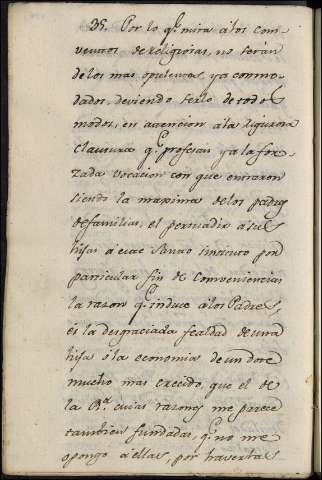 35. Por lo q.e mira à los com-
ventos de religiosas, no serán
de los mas opulentos, y acommo-
dados, deviendo serlo de todos
modos, en atencion a la rigurosa
clausura q.e profesan y a la for-
zada vocacion con que entraron
siendo la maxima de los padres
de familias, el persuadir a sus
hijas á este santo instituto por
particular fin de conveniencias
la razon q.e induce à los Padres,
es la desgraciada fealdad de una
hija ó la economia de un dote
mucho mas crecido, que el de
la R.a cuias razones me parecen
tambien fundadas, q.e no me
opongo a ellas, por haverlas